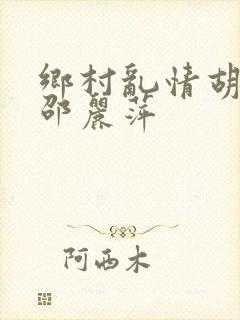 鄉村亂情胡
邵麗萍
阿西木